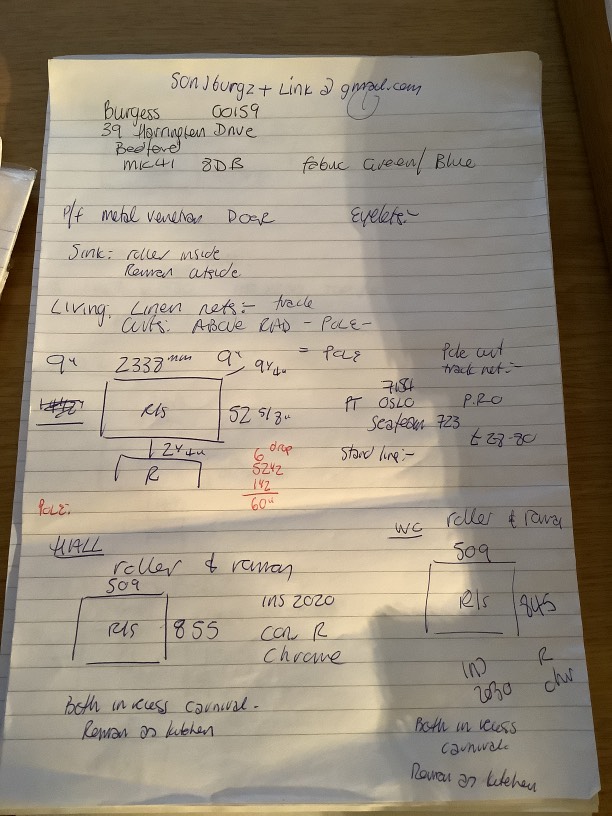 Burgess 00159
39 Harrington Drive
Bedford
MK41 8DB fabric Green/Blue
P/f metal venetian Door Eyelets:-
Sink: roller inside
Roman outside
Living: Linen nets:- track
ABOVE RAD - POLE -
= POLE
9" 2338 mm 9"
Pole
track net:-
R/s 52 5/8"
7154
PT OSLO P.RO
Seafoam 723
£28-80
Stand line:-
R
6 drop
60"
POLE:
HALL
roller & roman
509
R/s 855
INS 2020
Con R
Chrome
Both in recess carnival.
Roman as kitchen
WC roller & roman
509
R/s 845
R
2030 chr
Both in recess
carnival
Roman as kitchen